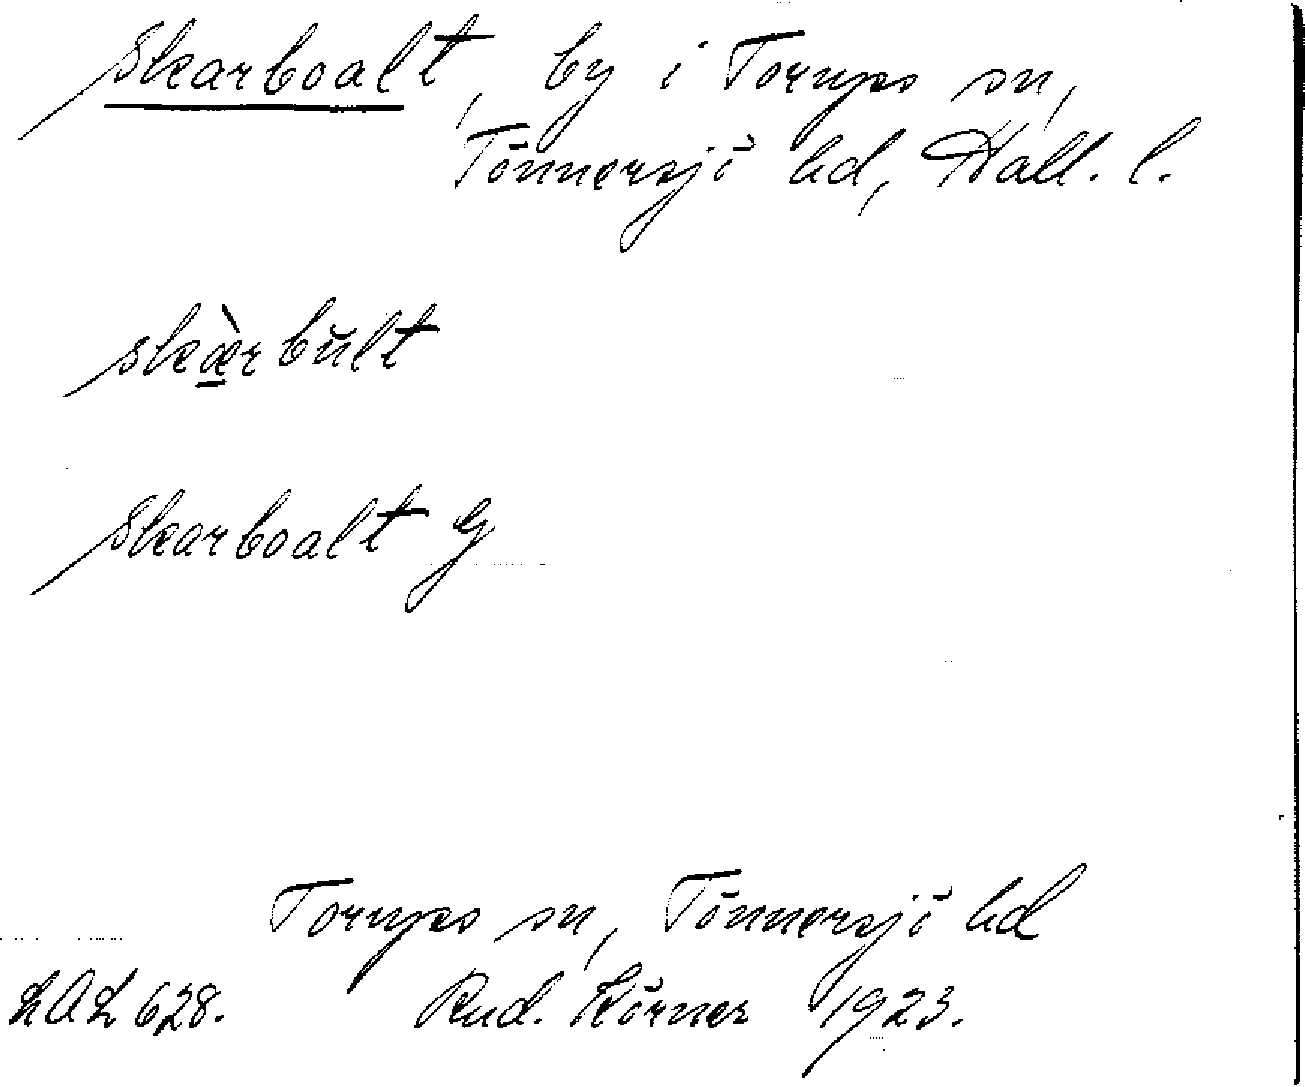 Skarboalt, by i Torups sn,
Tönnersjö hd, Hall. l.
skæ̱̀rbŭlt
Skarboalt G
Torups sn, Tönnersjö hd
LAL 628. Rud. Körner 1923.